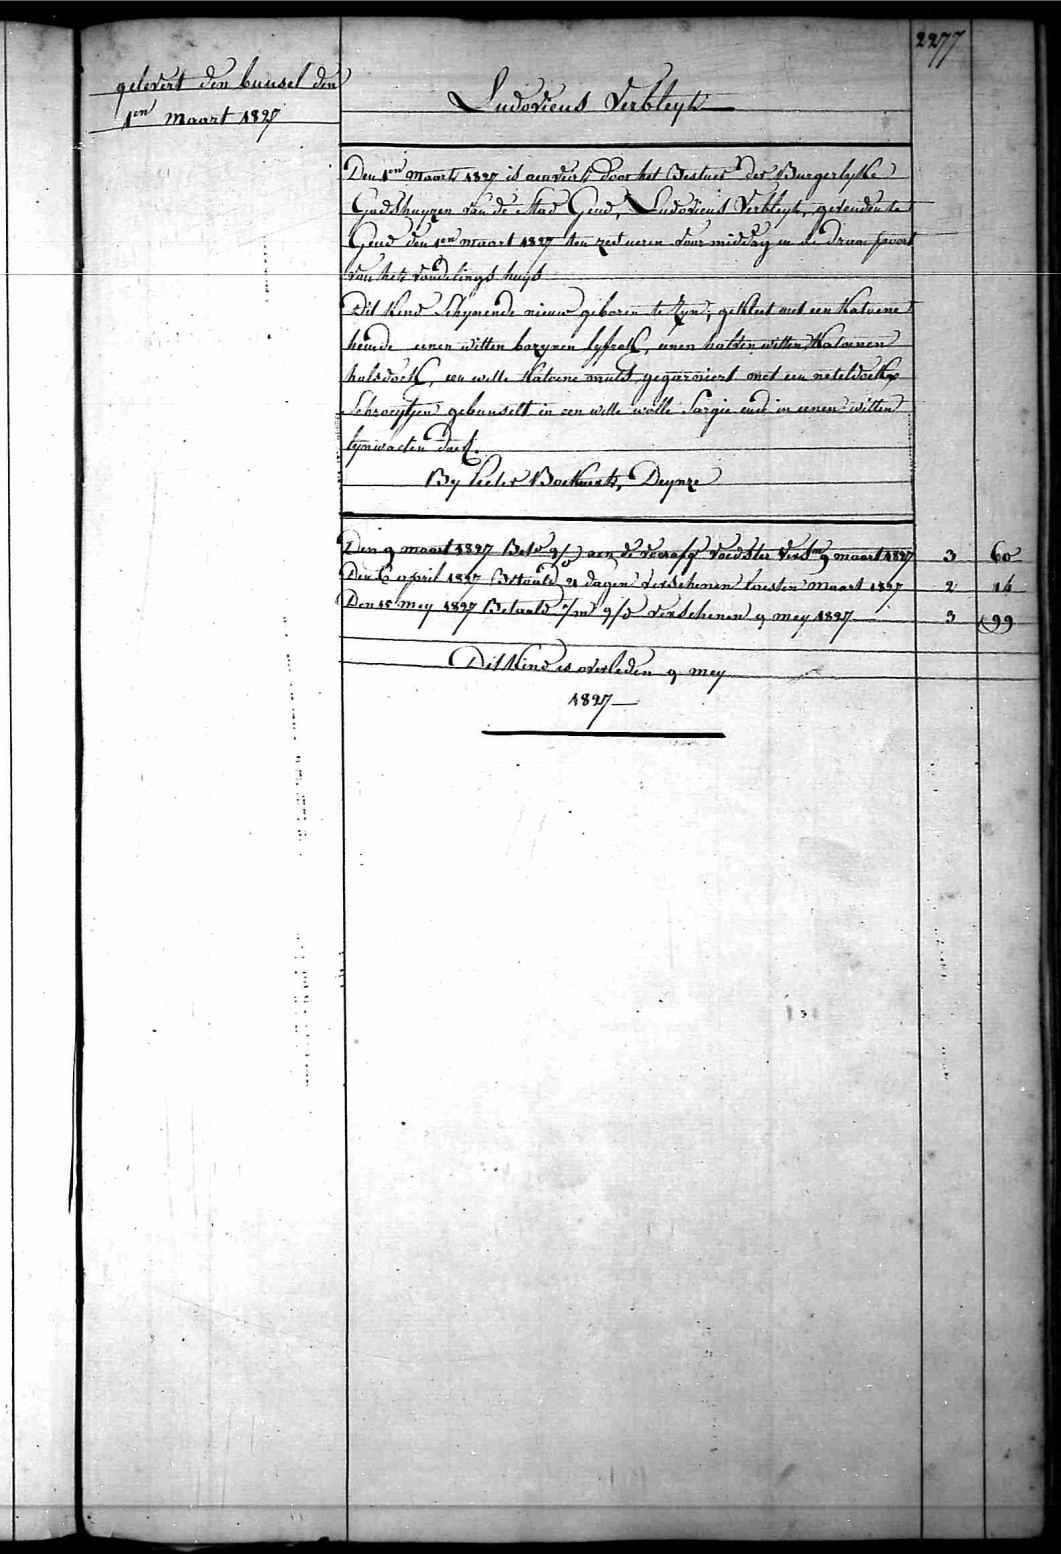 2277
gelevert den bunsel den
1en maart 1827
Ludovicus Verbleyt
Den 1en maart 1827 is aenveirt door het Bestuer der Burgerlyke
Godshuyzen van de Stad Gend, Ludovicus Verbleyt, gevonden te
Gend den 1en maart 1827 ten zest ueren voor middag in de Draai poort
van het vondelings huys
Dit kind schynende nieuw geboren te zyn, gekleet met een Katoene
hemde eenen witten bazynen lyfrok, eenen halven witten Katoenen
halsdoek, een witte Katoene muts gegarniert met een neteldoeksch
Schrooytjen gebunselt in een witte wolle Sargie ende in eenen witten
lynwaeten doek.
By Pieter Boekaert, Deynze
Den 9 maart 1827 Bet. aen de voedster 9 maart 1827 3 60
Den 6 april 1827 Betaald 21 dagen verschenen laesten maart 1827 2 16
Den 15 mey 1827 Betaald verschenen 9 mey 1827 3 99
Dit Kind is overleden 9 mey
1827